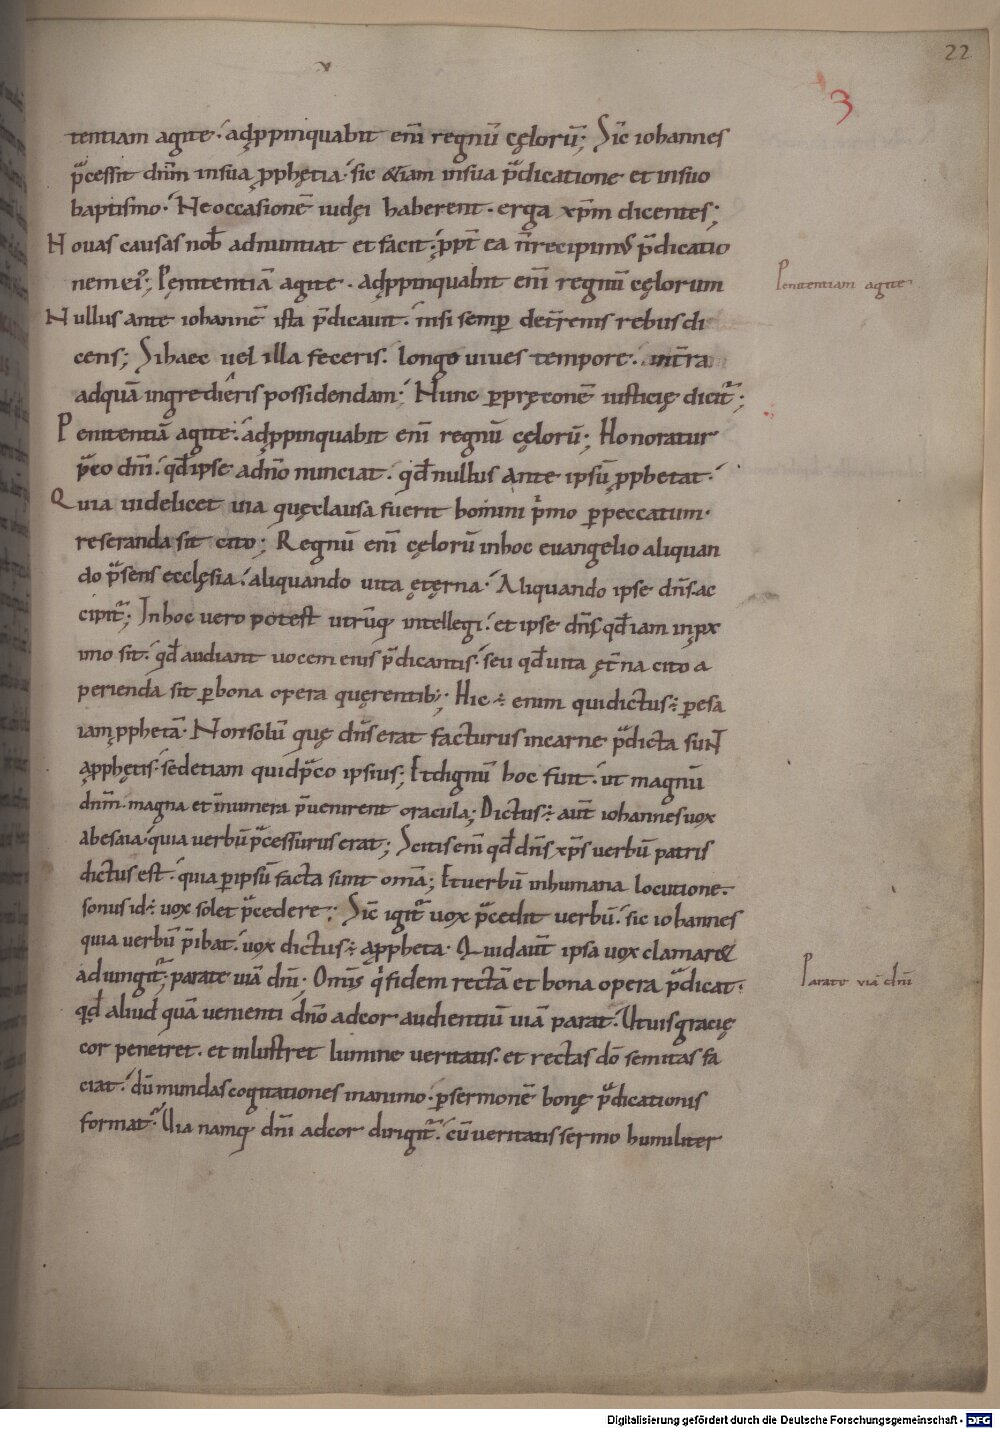 22
3
tentiam agite· adp̱pinquabit enī regnū cęlorū; Sic̄ iohannes
p̄cessit dnm̄ insua p̱phętia· sic &iam insua p̄dicatione et insuo
baptismo· Ne occasionē iudęi haberent· erga xp̄m dicentes;
Nouas causas nob̄ adnuntiat et facit· p̱pt̄ ea n̄ recipimꝰ p̄dicatio
nem eiꝰ; Pęnitentiā agite· adp̱pinquabit enī regnū cęlorum
Penitentiam agite·
Nullus ante iohannē ista p̄dicauit· nisi semꝑ det̄renis rebus di
cens; Si haec uel illa feceris· longo uiues tempore· int̄ra
adquā ingredieris possidendam; Nunc ꝑpręconē iusticię dicit᷑;
Penitentiā agite· adp̱pinquabit enī regnū cęlorū; Honoratur
p̄co dnī· qd̄ ipse adnō nunciat· qd̄ nullus ante ipsū p̱phetat·
Quia uidelicet uia quęclausa fuerit homini p̄mo ꝑpeccatum·
reseranda sit cito; Regnū enī cęlorū inhoc euangelio aliquan
do p̄sens ecclęsia· aliquando uita ęterna· Aliquando ipse dn̄s ac
cipit᷑; In hoc uero potest utrūq; intellegi· et ipse dn̄s qd̄ iam inp̱x
imo sit· qd̄ audiant uocem eius p̄dicantis· seu qd̄ uita ęt̄na cito a
perienda sit ꝑ bona opera quęrentib;· Hic ÷ enim qui dictus ÷ ꝑ esa
iam p̱phetā· Non solū quę dn̄s erat facturus incarne p̄dicta sunt
ap̱phętis· sed etiam quid p̄co ipsius; Et dignū hoc fuit· ut magnū
dnm̄· magna et innumera p̄uenirent oracula; Dictus ÷ aut̄ iohannes uox
abesaia· quia uerbū p̄cessurus erat; Scitis enī qd̄ dn̄s xp̄s uerbū patris
dictus est· quia ꝑ ipsū facta sunt omā; Et uerbū inhumana locutione·
sonus id ÷ uox solet p̄cedere; Sic̄ igit᷑ uox p̄cedit uerbū· sic iohannes
quia uerbū p̄ibat· uox dictus ÷ ap̱pheta· Quid aut̄ ipsa uox clamar&
adiungit᷑· parate uiā dnī· Omīs q̄ fidem rectā et bona opera p̄dicat·
Parate uiā dnī
qd̄ aliud quā uenienti dnō adcor audientiū uiā parat· Ut uis gracię
cor penetret· et inlustret lumine ueritatis· et rectas dō semitas fa
ciat· dū mundas cogitationes inanimo· ꝑ sermonē bonę p̄dicationis
format᷑· Uia namq; dnī adcor dirigit᷑· cū ueritatis sermo humiliter
Digitalisierung gefördert durch die Deutsche Forschungsgemeinschaft - DFG